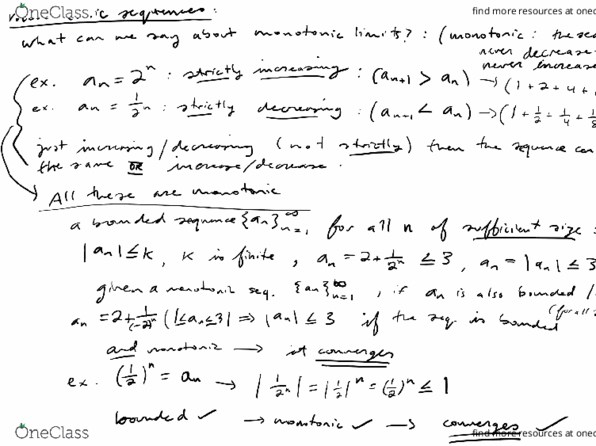 OneClass
find more resources at onec
sequences:
what can we say about monotonic limits? : (monotonic : the se
never decrease
never increase
ex. aₙ = 2ⁿ : strictly increasing : (aₙ₊₁ > aₙ) → (1 + 2 + 4 +
ex. aₙ = 1/2ⁿ : strictly decreasing : (aₙ₊₁ < aₙ) → (1 + 1/2 + 1/4 + 1/8
just increasing/decreasing (not strictly) then the sequence can
the same OR increase/decrease.
All these are monotonic
a bounded sequence {aₙ}ₙ₌₁^∞ for all n of sufficient size :
|aₙ| ≤ K, K is finite, aₙ = 2 + 1/2ⁿ ≤ 3, aₙ = |aₙ| ≤ 3
given a monotonic seq. {aₙ}ₙ₌₁^∞, if aₙ is also bounded
(for all
aₙ = 2 + 1/(-2)ⁿ (1 ≤ aₙ ≤ 3) ⇒ |aₙ| ≤ 3 if the seq is bounded
and monotonic → it converges
ex. (1/2)ⁿ = aₙ → |1/2ⁿ| = |1/2|ⁿ = (1/2)ⁿ ≤ 1
bounded ✓ → monotonic ✓ → converges ✓
OneClass
find more resources at onec